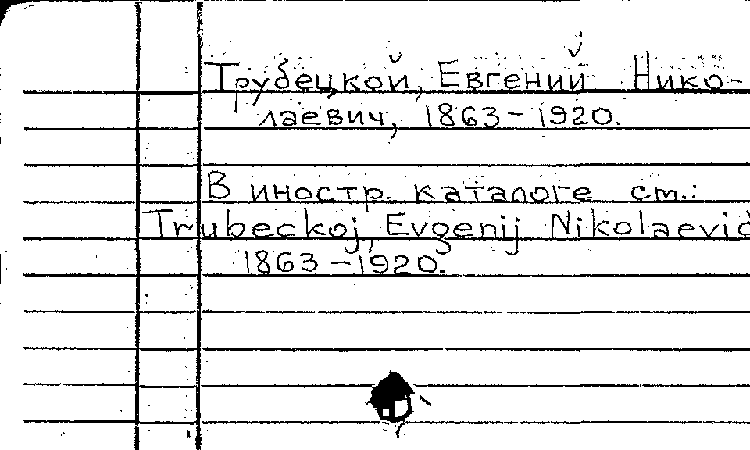 Трубецкой, Евгений Нико-
лаевич, 1863-1920.
В иностр. каталоге см.:
Trubeckoj, Evgenij Nikolaevič
1863-1920.